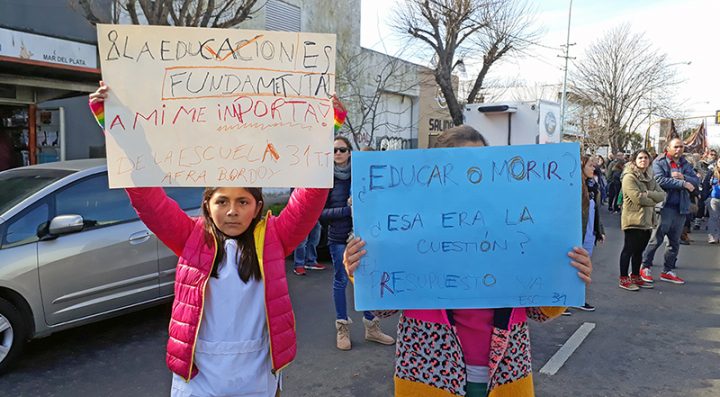 MAR DEL PLATA
& LA EDUCACION ES
FUNDAMENTAL
A MI ME INPORTA
DE LA ESCUELA 31 TT
AFRA BORDOY
¿EDUCAR O MORIR?
¿ESA ERA LA
CUESTIÓN?
PRESUPUESTO YA
ESC 31